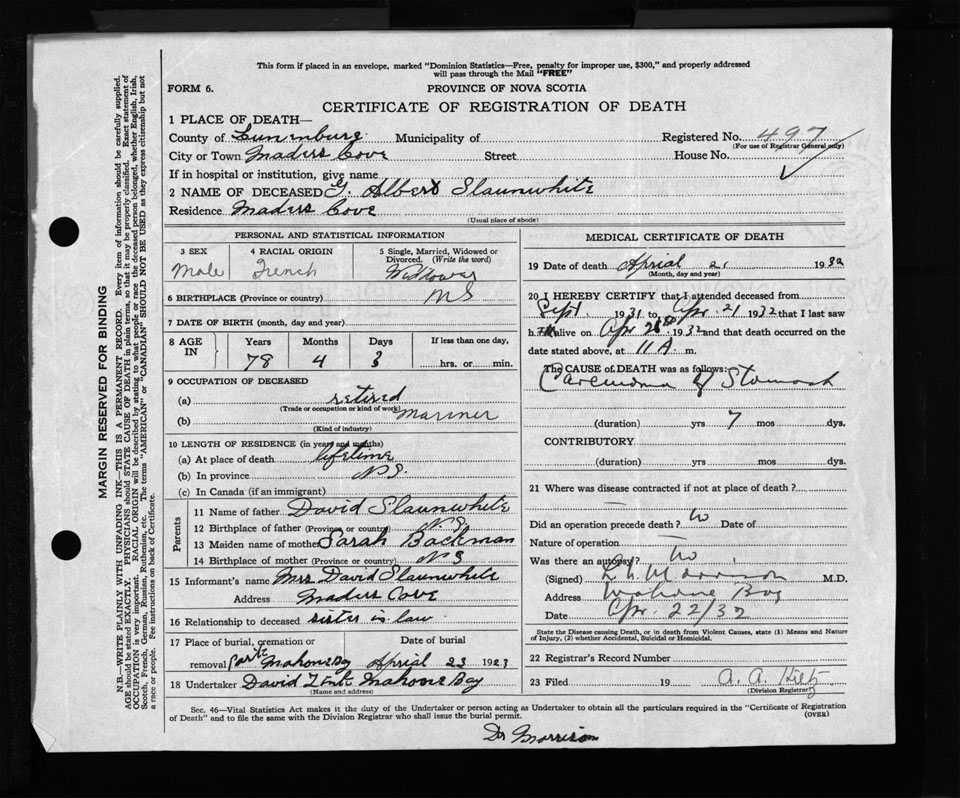 This form if placed in an envelope, marked "Dominion Statistics—Free, penalty for improper use, $300," and properly addressed
will pass through the Mail "FREE"
FORM 6. PROVINCE OF NOVA SCOTIA
CERTIFICATE OF REGISTRATION OF DEATH
1 PLACE OF DEATH—
County of Lunenburg Municipality of Registered No. 497
(For use of Registrar General only)
City or Town Maders Cove Street House No.
If in hospital or institution, give name
2 NAME OF DECEASED G. Albert Slaunwhite
Residence Maders Cove
(Usual place of abode)
PERSONAL AND STATISTICAL INFORMATION
3 SEX 4 RACIAL ORIGIN 5 Single, Married, Widowed or
Divorced. (Write the word)
Male French Widower
6 BIRTHPLACE (Province or country) NS
7 DATE OF BIRTH (month, day and year)
8 AGE IN Years Months Days If less than one day,
78 4 3 hrs. or min.
9 OCCUPATION OF DECEASED
(a) retired
(Trade or occupation or kind of work)
(b) Mariner
(Kind of industry)
10 LENGTH OF RESIDENCE (in years and months)
(a) At place of death lifetime
(b) In province N.S.
(c) In Canada (if an immigrant)
Parents
11 Name of father David Slaunwhite
12 Birthplace of father (Province or country) N.S.
13 Maiden name of mother Sarah Backman
14 Birthplace of mother (Province or country) NS
15 Informant's name Mrs David Slaunwhite
Address Maders Cove
16 Relationship to deceased sister in law
17 Place of burial, cremation or Date of burial
removal Mahone Bay Aprial 23 1923
18 Undertaker David Mahone Bay
(Name and address)
MEDICAL CERTIFICATE OF DEATH
19 Date of death Aprial 21 1932
(Month, day and year)
20 I HEREBY CERTIFY that I attended deceased from
Sept 1931 to Apr. 21 1932 that I last saw
h alive on Apr 1932 and that death occurred on the
date stated above, at 11 A m.
The CAUSE OF DEATH was as follows:
Carcinoma of Stomach
(duration) yrs 7 mos dys.
CONTRIBUTORY
(duration) yrs. mos. dys.
21 Where was disease contracted if not at place of death?
Did an operation precede death? no Date of
Nature of operation
Was there an autopsy? no
(Signed) Morrison M.D.
Address Mahone Bay
Date Apr. 22/32
State the Disease causing Death, or in death from Violent Causes, state (1) Means and Nature
of Injury, (2) whether Accidental, Suicidal or Homicidal.
22 Registrar's Record Number
23 Filed 19 A. A.
(Division Registrar)
Sec. 46—Vital Statistics Act makes it the duty of the Undertaker or person acting as Undertaker to obtain all the particulars required in the "Certificate of Registration
of Death" and to file the same with the Division Registrar who shall issue the burial permit.
(OVER)
Dr Morrison
MARGIN RESERVED FOR BINDING
N.B.—WRITE PLAINLY WITH UNFADING INK—THIS IS A PERMANENT RECORD. Every item of information should be carefully supplied.
AGE should be stated EXACTLY. PHYSICIANS should STATE CAUSE OF DEATH in plain terms, so that it may be properly classified. Exact statement of
OCCUPATION is very important. RACIAL ORIGIN will be described by stating to what people or race the deceased person belonged, whether English, Irish,
Scotch, French, German, Russian, Ruthenian, etc. The terms "AMERICAN" or "CANADIAN" SHOULD NOT BE USED as they express citizenship but not
a race or people. See instructions on back of Certificate.